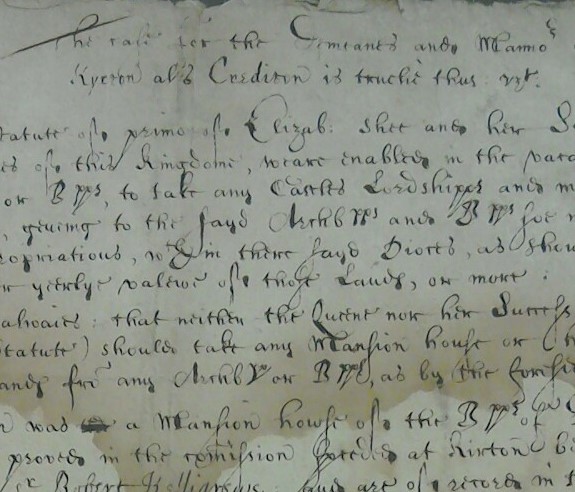 The case for the Demeanes and Manno
Kyrton als Crediton is truelie thus vizt.
tatute of primo of Elizab: shee and her Su
es of this Kingdome, weare enabled in the vaca
or Bpps, to take any Castles Lordshipps and m
, geuing to the sayd Archbpps and Bpps soe m
ropriations, wth in there sayd Dioces, as shou
r yeerlye valewe of those Lands, or more :
alwaies : that neither the Queene nor her Success
tatute) should take any Mansion house or
ands fro any Archbpp or Bpps, as by the foresaid
n was a Mansion howse of the Bpps of
proved in the comission speeded at Kirton
Robert Killigrewe : and are of record in